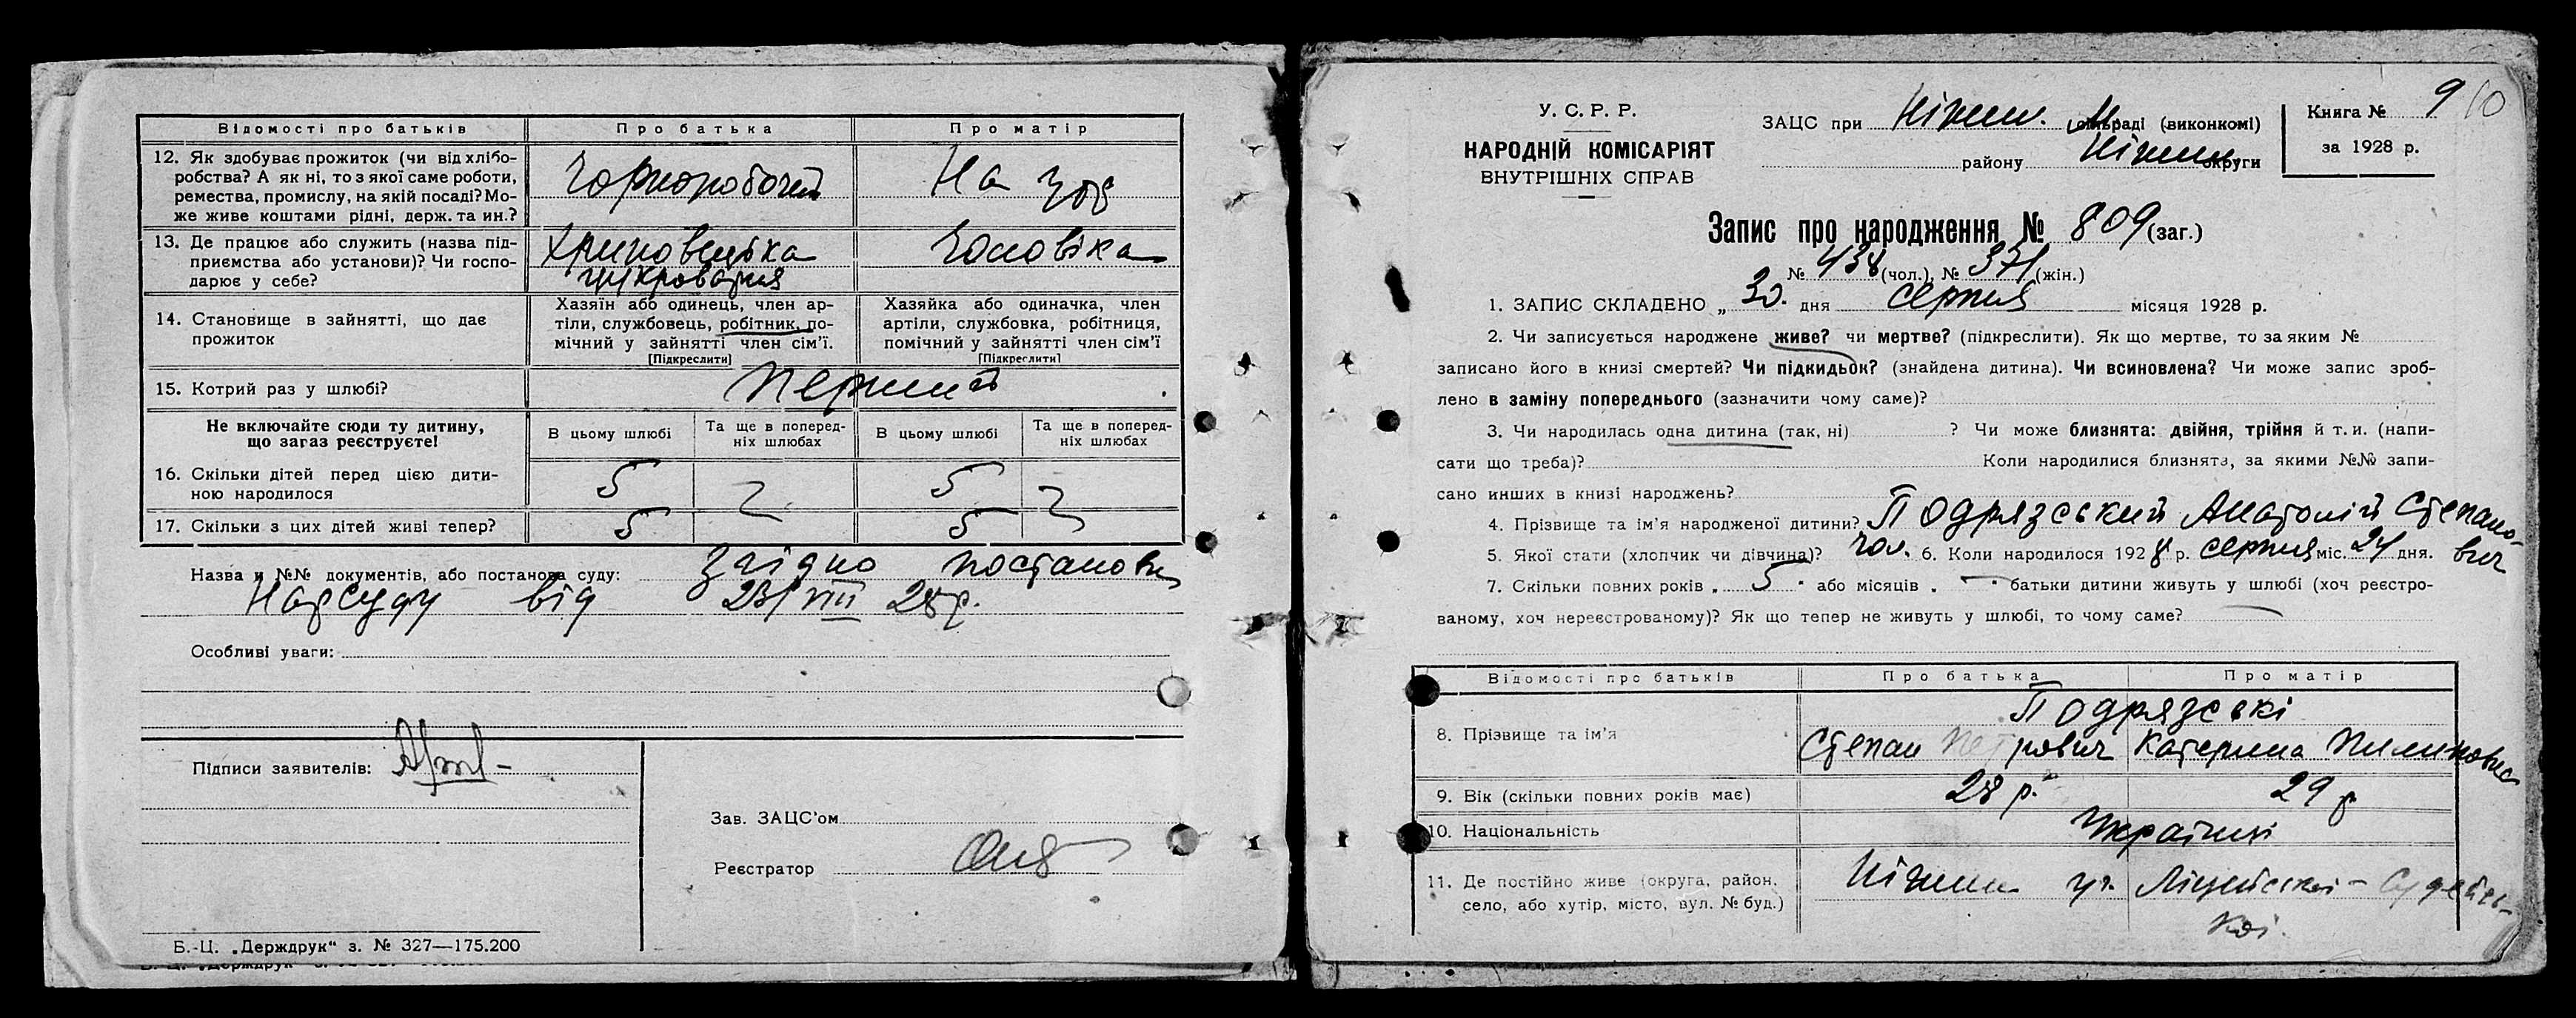 Відомості про батьків Про батька Про матір
12. Як здобуває прожиток (чи від хлібо-
робства? А як ні, то з якої саме роботи,
ремества, промислу, на якій посаді? Мо-
же живе коштами рідні, держ. та ин.?
Чорноробочий На зоб
13. Де працює або служить (назва під-
приємства або установи)? Чи госпо-
дарює у себе?
цукроварня чоловіка
14. Становище в зайнятті, що дає
прожиток
Хазяїн або одинець, член ар-
тіли, службовець, робітник, по-
мічний у зайнятті член сім’ї.
[Підкреслити]
Хазяйка або одиначка, член
артіли, службовка, робітниця,
помічний у зайнятті член сім’ї
[Підкреслити]
15. Котрий раз у шлюбі? Перший
Не включайте сюди ту дитину,
що загаз реєструєте!
В цьому шлюбі Та ще в поперед-
ніх шлюбах В цьому шлюбі Та ще в поперед-
ніх шлюбах
16. Скільки дітей перед цією дити-
ною народилося 5 5
17. Скільки з цих дітей живі тепер? 5 5
Назва и №№ документів, або постанова суду: Згідно постанови
Нарсуду від 23/VIII 28 р.
Особливі уваги:
Підписи заявителів:
Зав. ЗАЦС’ом
Реєстратор
Б.-Ц. „Держдрук“ з. № 327—175.200
У. С. Р. Р.
НАРОДНІЙ КОМІСАРІЯТ
ВНУТРІШНІХ СПРАВ
ЗАЦС при Ніжин. М. сільраді (виконкомі)
району Ніжин. округи
Книга № 9 10
за 1928 р.
Запис про народження № 809 (заг.)
№ 438 (чол.), № 371 (жін.)
1. ЗАПИС СКЛАДЕНО „ 30. дня серпня місяця 1928 р.
2. Чи записується народжене живе? чи мертве? (підкреслити). Як що мертве, то за яким №
записано його в книзі смертей? Чи підкидьок? (знайдена дитина). Чи всиновлена? Чи може запис зроб-
лено в заміну попереднього (зазначити чому саме)?
3. Чи народилась одна дитина (так, ні) ? Чи може близнята: двійня, трійня й т. и. (напи-
сати що треба)? Коли народилися близнята, за якими №№ запи-
сано инших в книзі народжень?
4. Прізвище та ім’я народженої дитини? Подрязський Анатолій Степано-
вич
5. Якої стати (хлопчик чи дівчина)? чол. 6. Коли народилося 1928 р. серпня міс. 24 дня.
7. Скільки повних років „ 5 “ або місяців „ — “ батьки дитини живуть у шлюбі (хоч реєстро-
ваному, хоч нереєстрованому)? Як що тепер не живуть у шлюбі, то чому саме? —
Відомості про батьків Про батька Про матір
8. Прізвище та ім’я Подрязські
Степан Петрович Катерина Пилиповна
9. Вік (скільки повних років має) 28 р. 29 р
10. Національність Українці
11. Де постійно живе (округа, район,
село, або хутір, місто, вул. № буд.)
Ніжин Ліцейської - Судейсь-
кої.